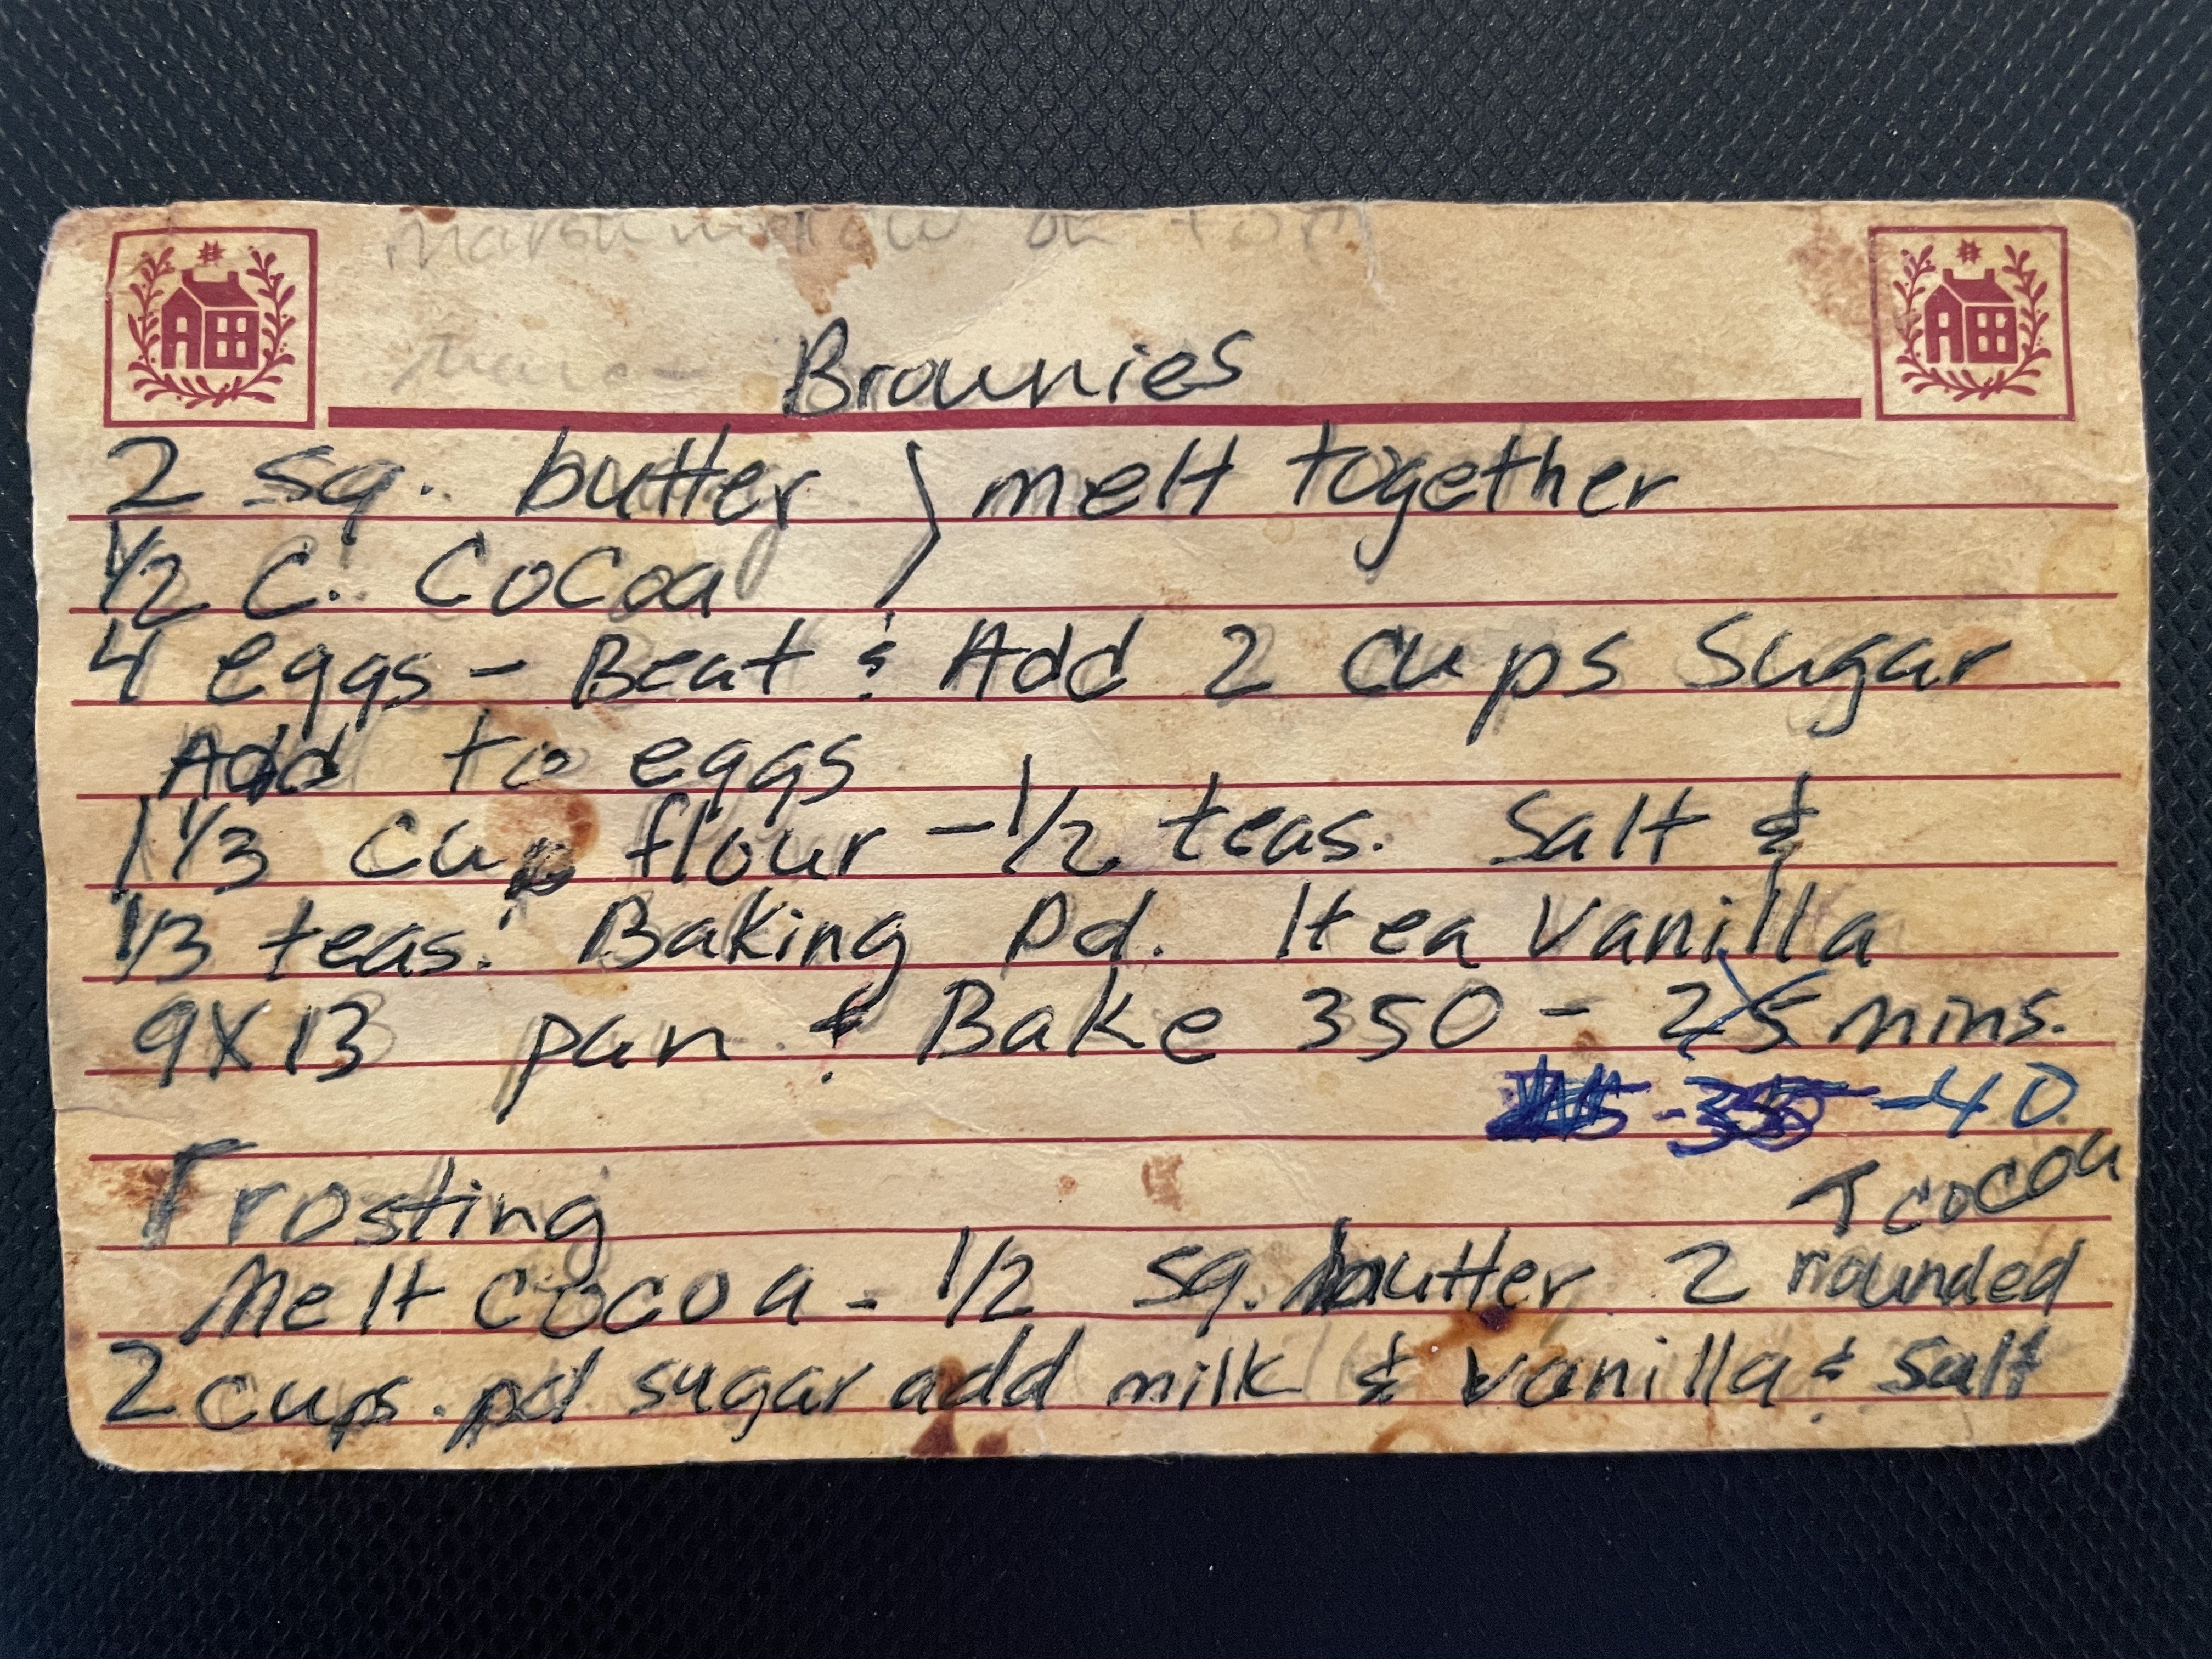 marshmellow on top
Brownies
2 sq. butter } melt together
1/2 C. Cocoa
4 eggs - Beat & Add 2 cups sugar
Add to eggs
1 1/3 cup flour - 1/2 teas. Salt &
1/3 teas. Baking Pd. 1 tea Vanilla
9X13 pan & Bake 350 - 25 mins.
-40
Frosting
T cocoa
Melt cocoa - 1/2 sq. butter 2 rounded
2 cups. pd sugar add milk & vanilla & salt